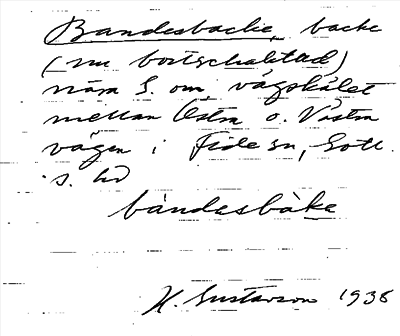 Bandesbacke, backe
(nu bortschaktad)
nära S. om vägskälet
mellan Östra o. Västra
vägen i Fide sn, Gotl.
s. hd
bàndasbàke
H. Gustavson 1938